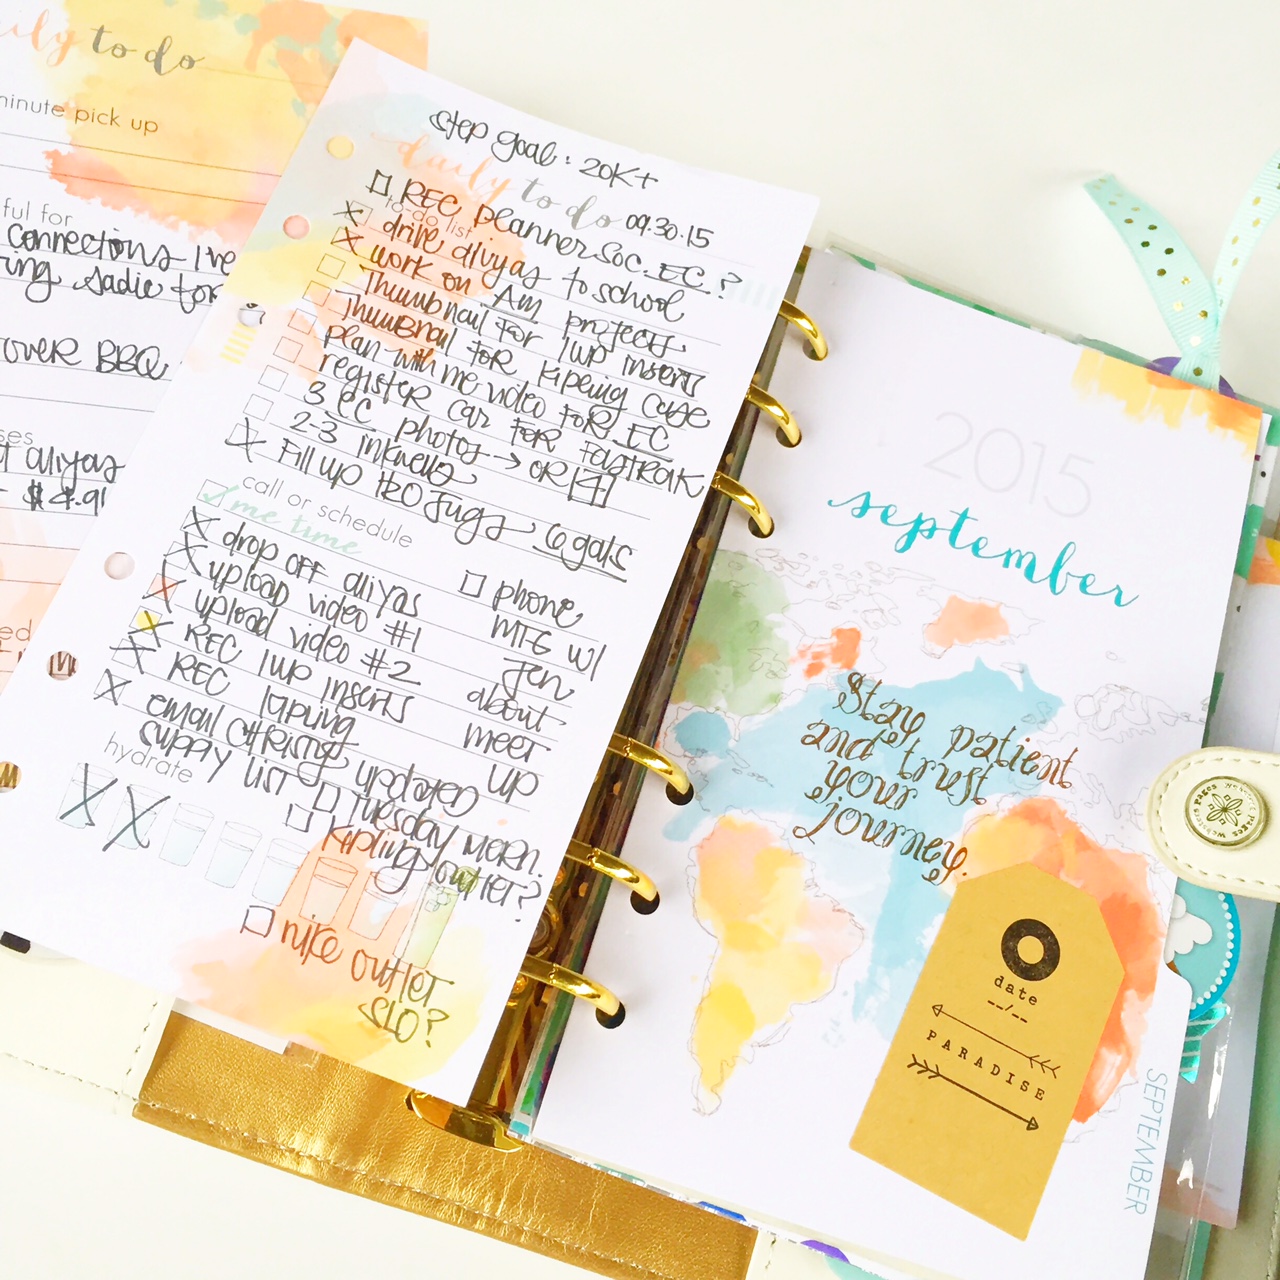 daily to do
minute pick up
ful for
connections I've
ring sadie for
over BBQ
ses
t aliyas
$4.91
ed
step goal: 20K+
daily to do 09.30.15
REC plannerSoc. EC.?
to do list
drive aliyas to school
work on Am projects
Thumbnail for 1WP inserts
Thumbnail for Kipling case
plan with me video for EC
register car for Fastrak
3 EC photos → or 4
2-3
Fill up H2O Jugs 6 gals
call or schedule
me time
drop off aliyas
upload video #1
upload video #2
REC 1WP inserts
REC
email updated
supply list
phone
MTG w/
Jen
about
meet
up
hydrate
Tuesday morn.
Kipling outlet?
nike outlet
SLO?
2015
september
Stay patient
and trust
your
journey.
date
--/--
PARADISE
SEPTEMBER
Webster's Pages